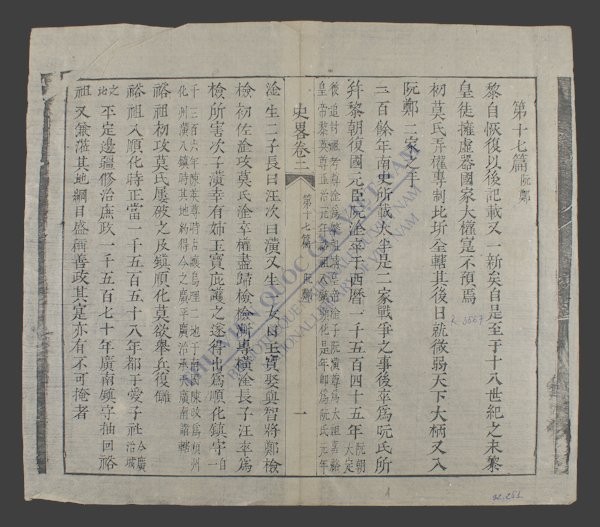 第十七篇 阮鄭
黎自恢復以後記載又一新矣自是至于十八世紀之末黎
皇徒擁虛器國家大權寔不預焉
初莫氏弄權專制北圻全轄其後日就微弱天下大柄又入
阮鄭二家之手
二百餘年南史所載大半是二家戰爭之事後卒爲阮氏所
并黎朝復國元臣阮淦卒于西曆一千五百四十五年
史畧卷二
第十七篇 阮鄭
一
淦生二子長曰汪次曰潢又生一女曰玉寶娶與智將鄭檢
檢初佐淦攻莫氏淦卒權盡歸檢檢漸專橫淦長子汪卒爲
檢所害次子潢幸有姊玉寶庇護之遂得出爲順化鎮守
裕祖初攻莫氏屢破之及鎮順化莫欲舉兵復讎
裕祖入順化時正當一千五百五十八年都于愛子社
平定邊疆修治庶政一千五百七十年廣南鎮守抽回裕
祖又兼蒞其地綱目盛稱善政其寔亦有不可掩者
THƯ VIỆN QUỐC GIA VIỆT NAM
NATIONAL LIBRARY OF VIETNAM